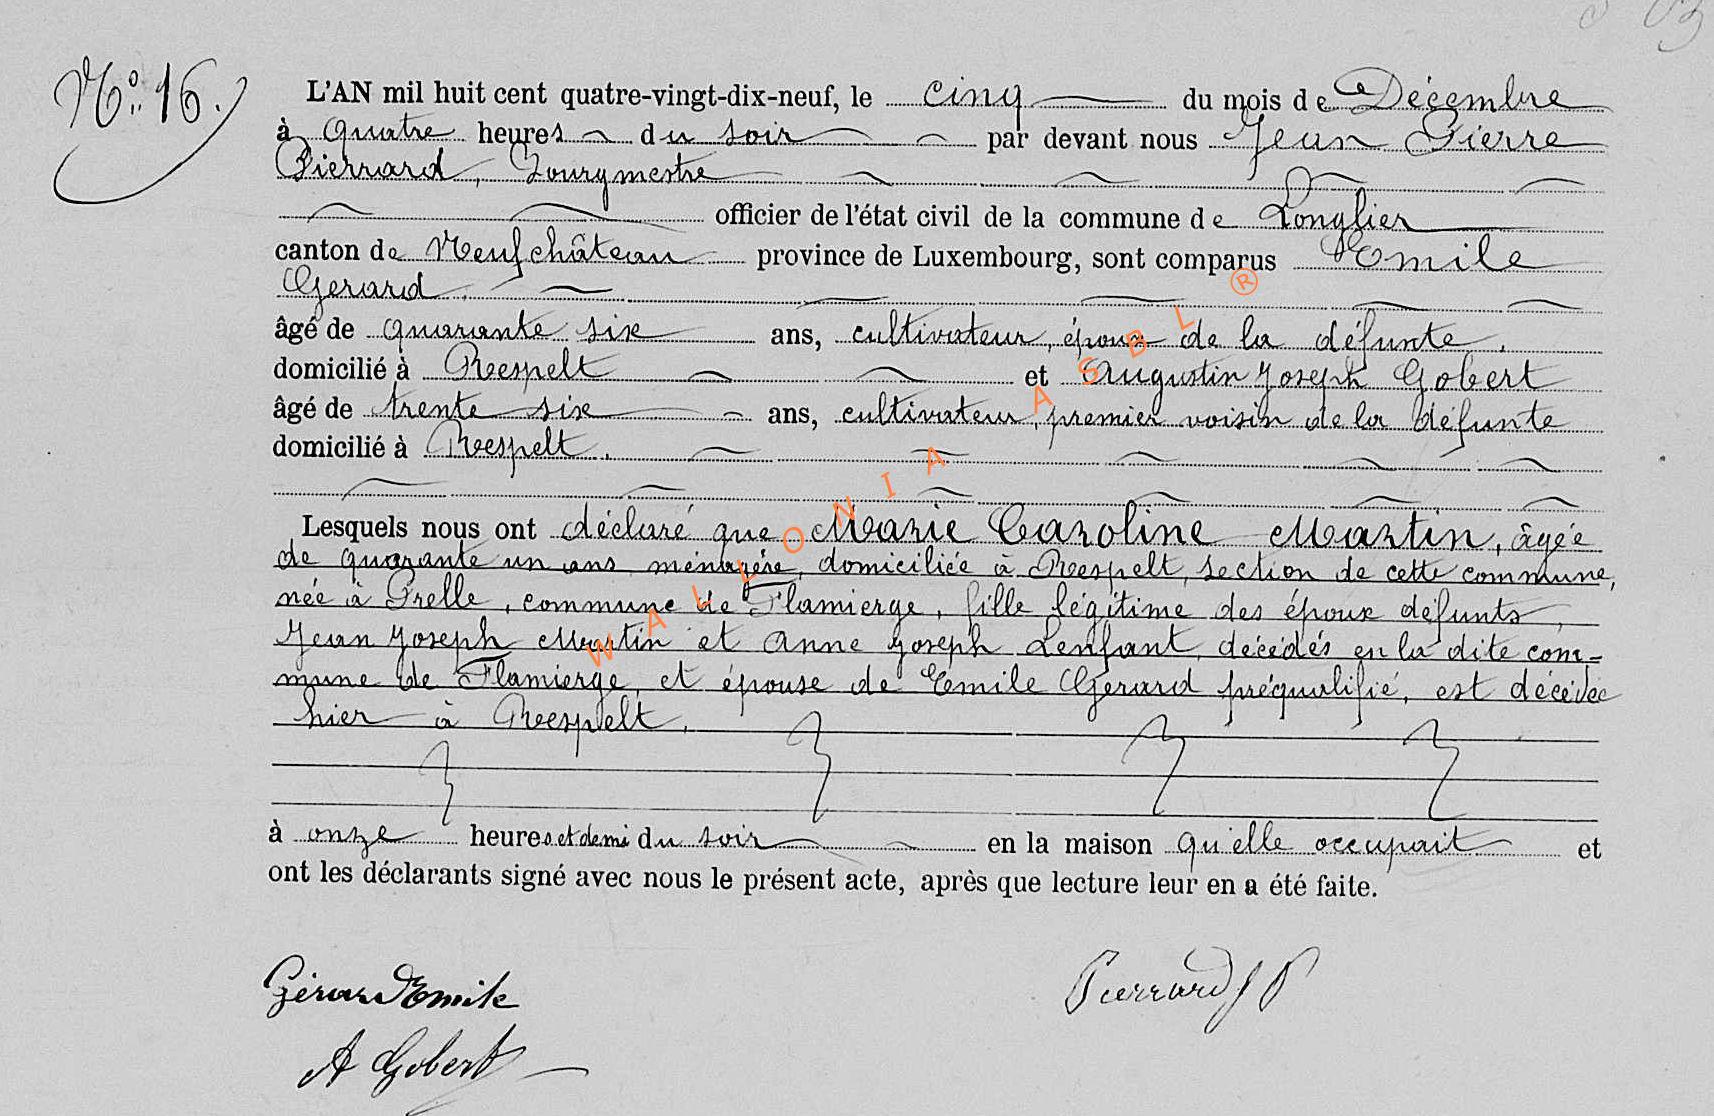 No. 16.
L'AN mil huit cent quatre-vingt-dix-neuf, le cinq du mois de Décembre
à quatre heures du soir par devant nous Jean Pierre
Pierrard, Bourgmestre
officier de l'état civil de la commune de Longlier
canton de Neufchâteau province de Luxembourg, sont comparus Emile
Gerard.
âgé de quarante six ans, cultivateur, époux de la défunte,
domicilié à Respelt et Augustin Joseph Gobert
âgé de trente six ans, cultivateur, premier voisin de la défunte
domicilié à Respelt.
Lesquels nous ont déclaré que Marie Caroline Martin, âgée
de quarante un ans ménagère, domiciliée à Respelt, section de cette commune,
née à Prelle, commune de Flamierge, fille légitime des époux défunts,
Jean Joseph Martin et Anne Joseph Lenfant, décédés en la dite com-
mune de Flamierge, et épouse de Emile Gerard préqualifié, est décédée
hier à Respelt.
à onze heures et demi du soir en la maison qu'elle occupait et
ont les déclarants signé avec nous le présent acte, après que lecture leur en a été faite.
Gérard Emile
Pierrard J P
A Gobert
WALLONIA ASBL ®